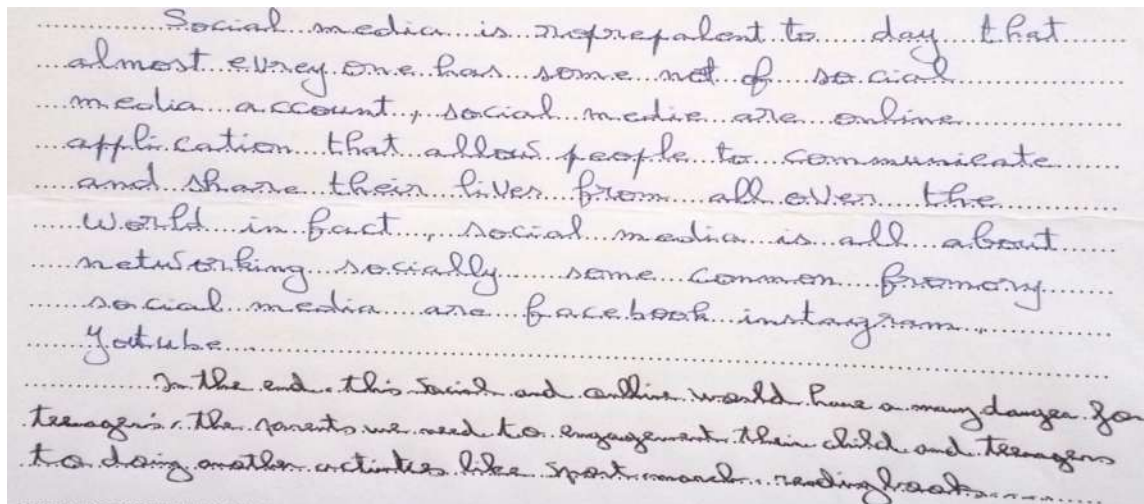 Social media is noprepalent to day that
almost evrey one has some not of social
media account, social media are online
application that allows people to communicate
and share their lives from all over the
world in fact, social media is all about
networking socially some common fromory
social media are facebook instagram,
Youtube
In the end. this social and online world have a many danger for
teenagers. the parents we need to engagement their child and teenagers
to doing another activities like sport reading book